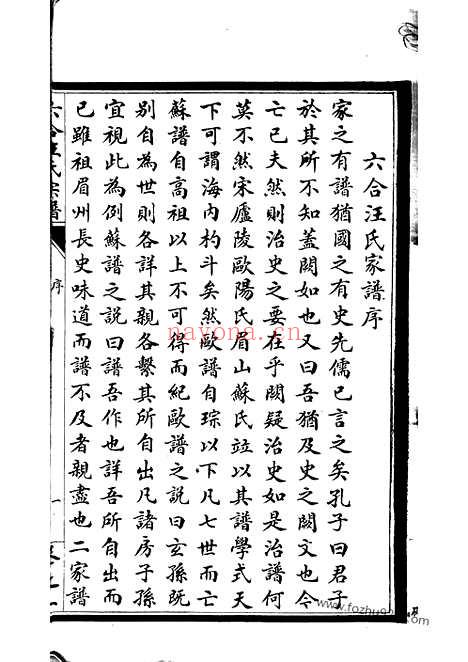 六合汪氏家譜序
家之有譜猶國之有史先儒已言之矣孔子曰君子
於其所不知蓋闕如也又曰吾猶及史之闕文也今
亡已夫然則治史之要在乎闕疑治史如是治譜何
莫不然宋廬陵歐陽氏眉山蘇氏竝以其譜學式天
下可謂海內杓斗矣然歐譜自琮以下凡七世而亡
蘇譜自高祖以上不可得而紀歐譜之說曰玄孫既
別自為世則各詳其親各繫其所自出凡諸房子孫
宜視此為例蘇譜之說曰譜吾作也詳吾所自出而
已雖祖眉州長史味道而譜不及者親盡也二家譜
六合汪氏宗譜
序
一
nayona.cn
www.fozhu920.com